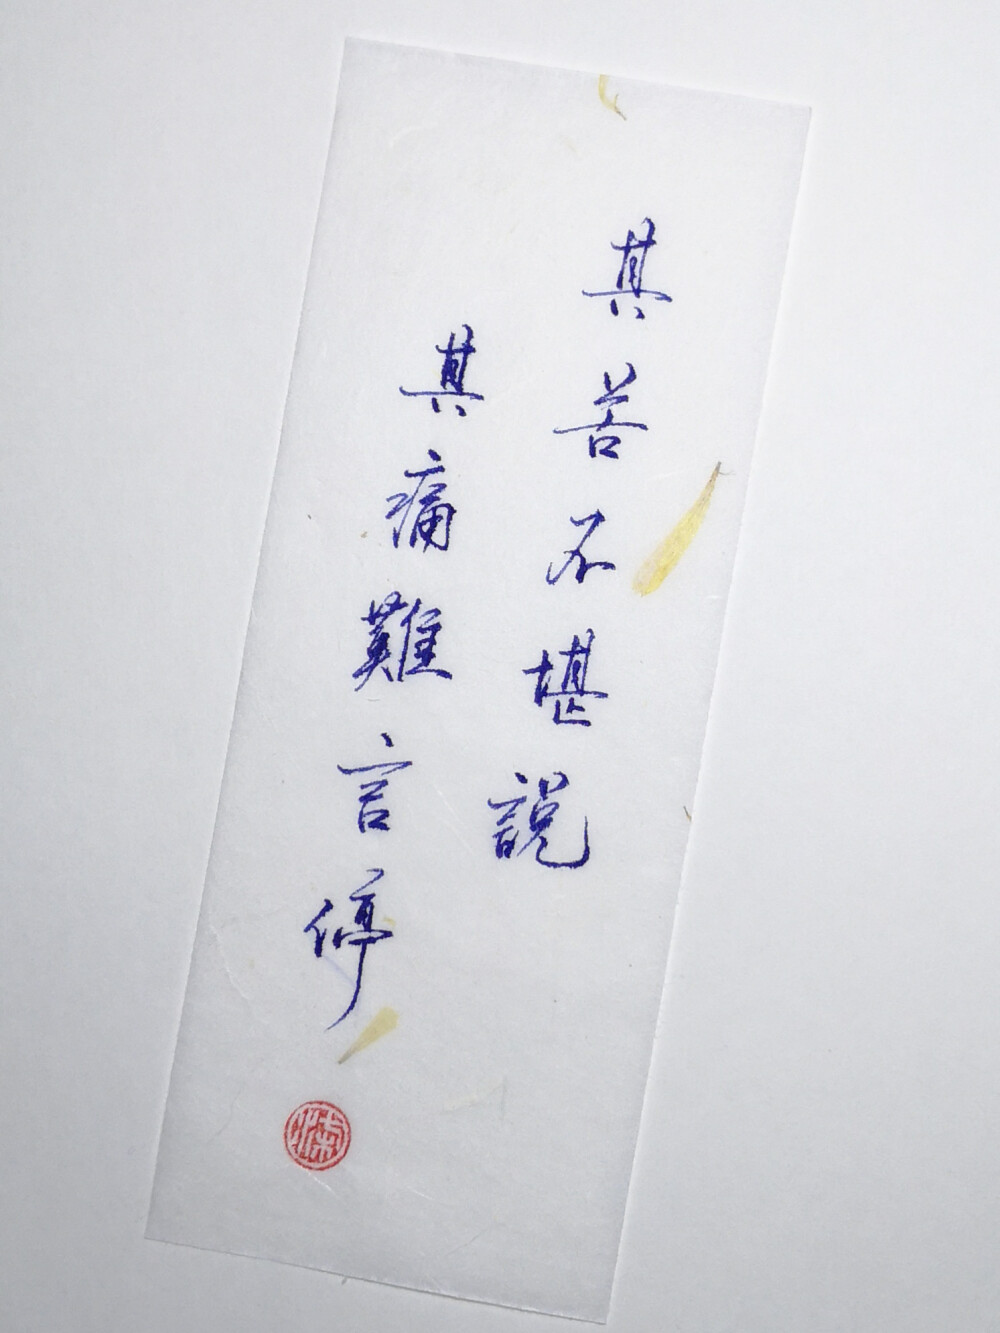 其苦不堪說
其痛難言停